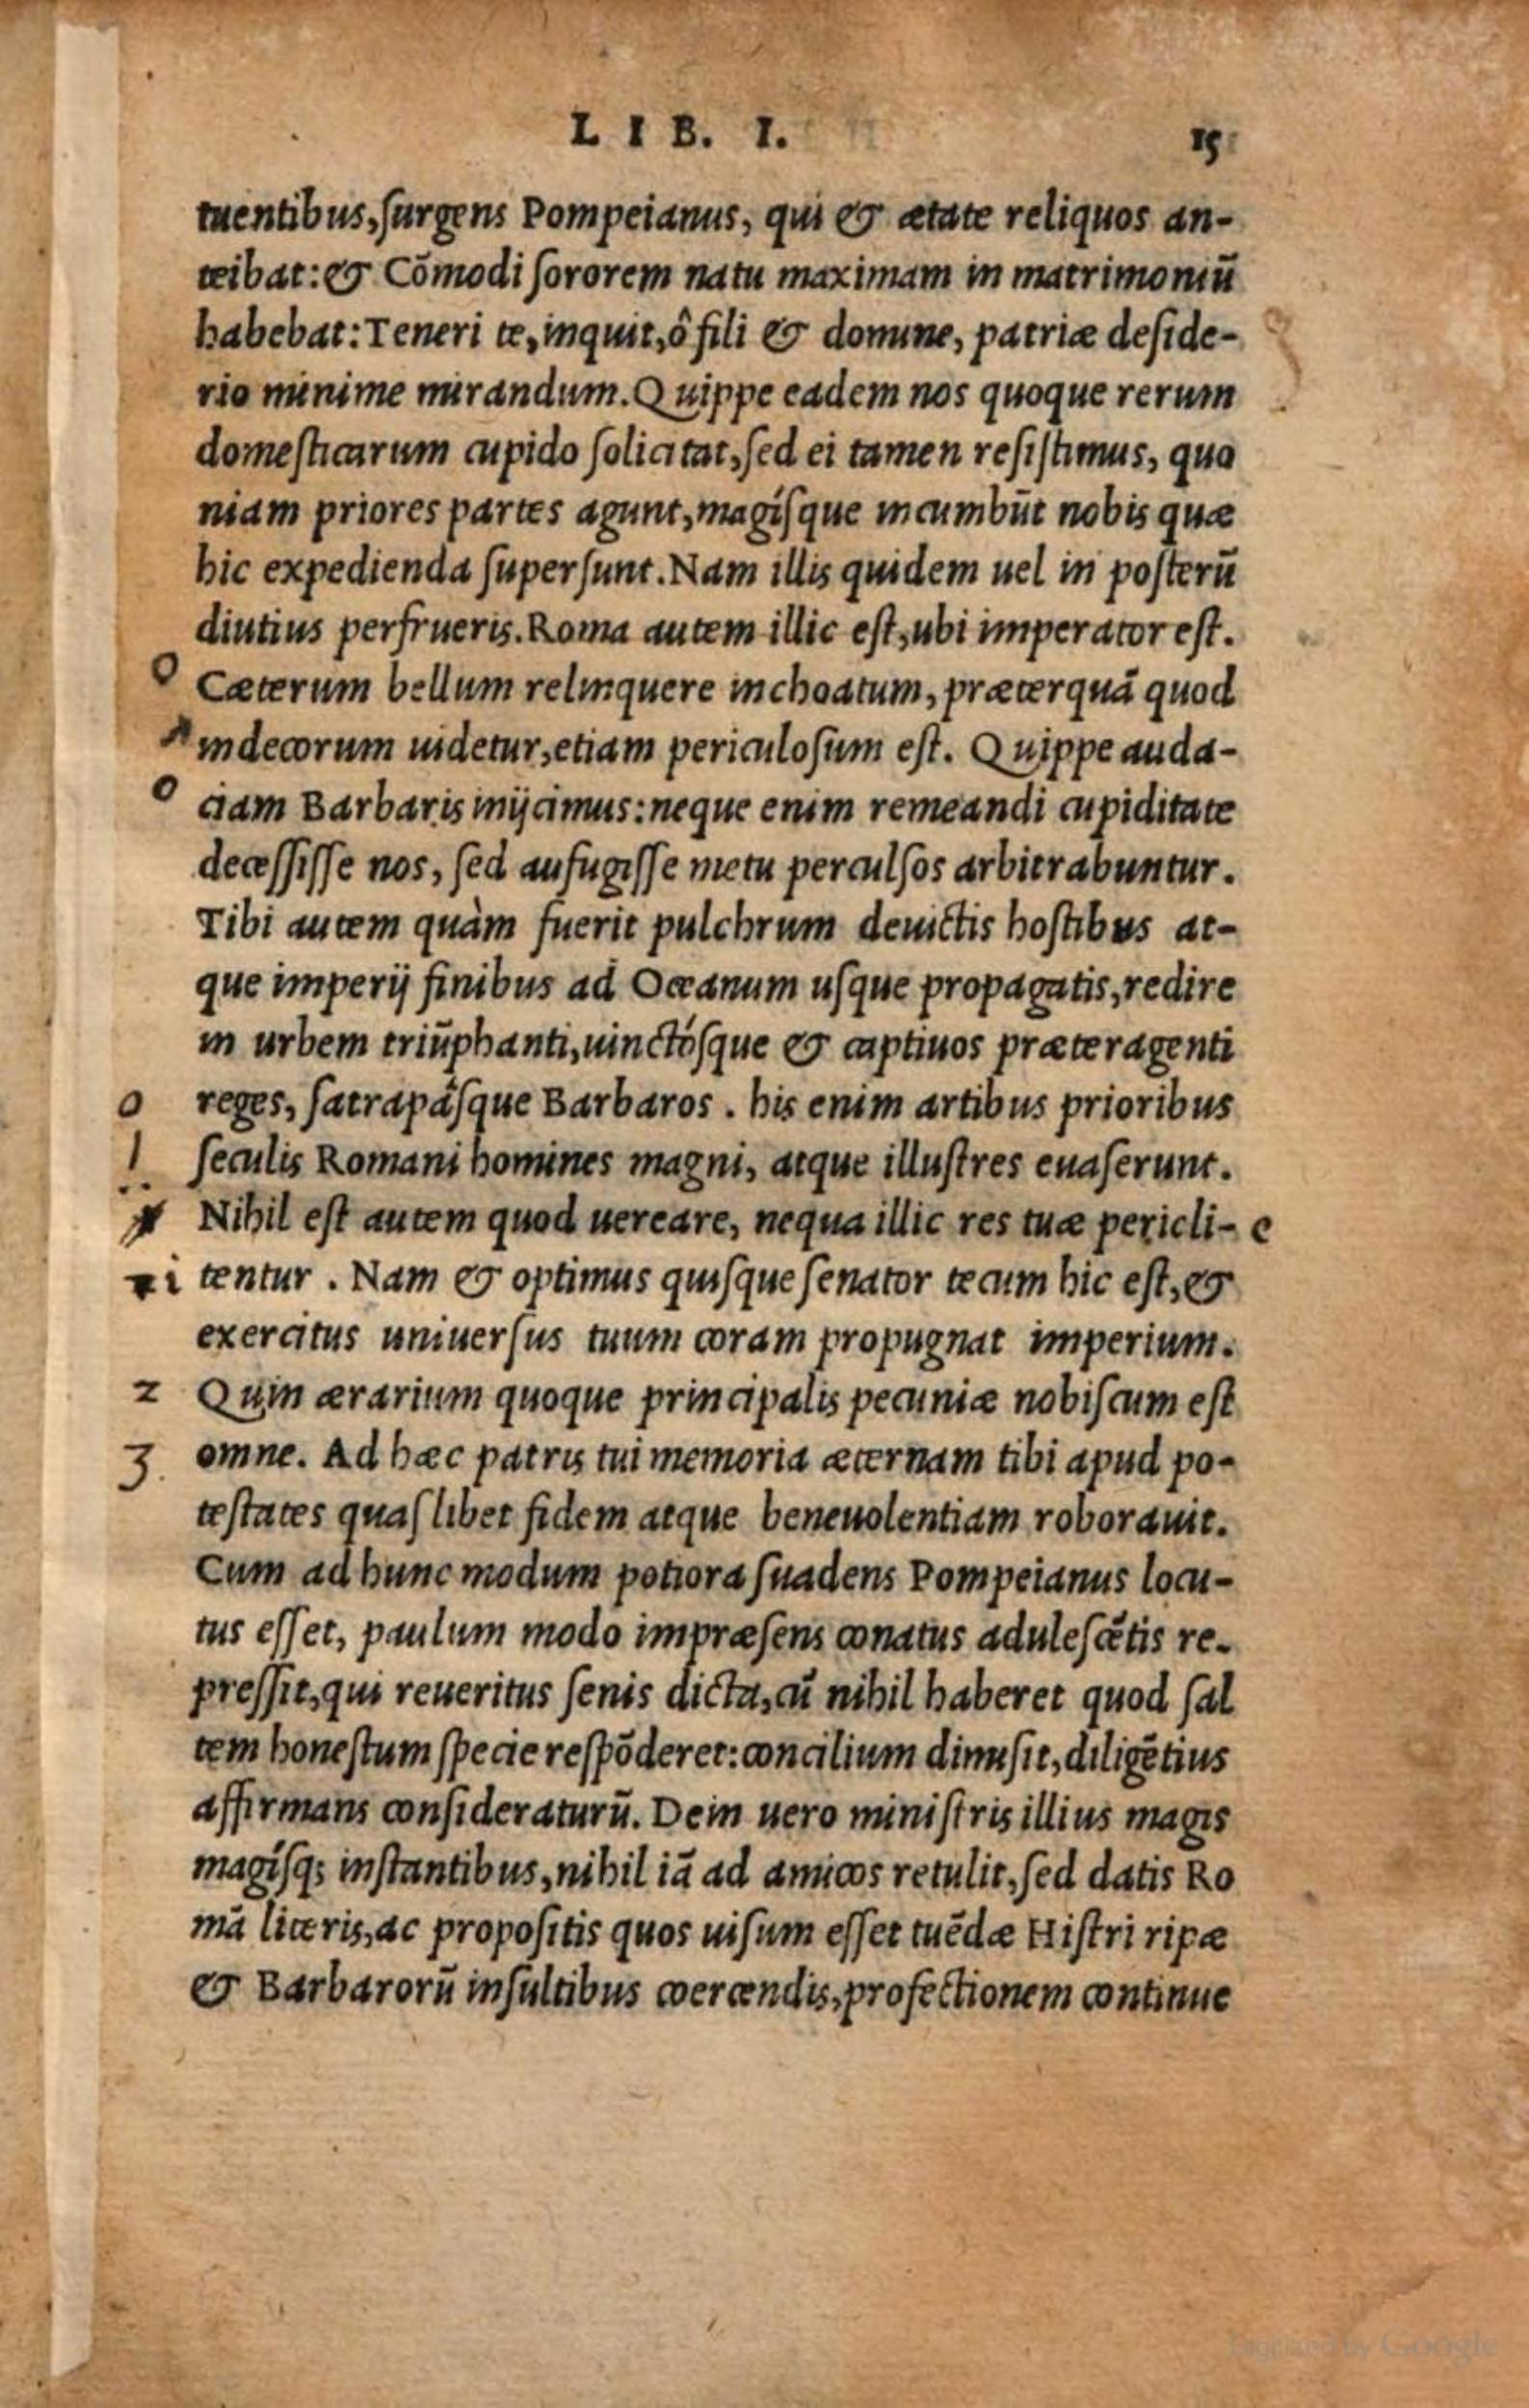 LIB. I. 15
tuentibus,surgens Pompeianus, qui & ætate reliquos an-
teibat:& Cōmodi sororem natu maximam in matrimoniū
habebat:Teneri te,inquit,ô fili & domine, patriæ deside-
rio minime mirandum.Quippe eadem nos quoque rerum
domesticarum cupido solicitat,sed ei tamen resistimus, quo
niam priores partes agunt,magísque incumbūt nobis quæ
hic expedienda supersunt.Nam illis quidem uel in posterū
diutius perfrueris.Roma autem illic est,ubi imperator est.
o Cæterum bellum relinquere inchoatum,præterquā quod
indecorum uidetur,etiam periculosum est. Quippe auda-
o ciam Barbaris inijcimus:neque enim remeandi cupiditate
decessisse nos, sed aufugisse metu perculsos arbitrabuntur.
Tibi autem quàm fuerit pulchrum deuictis hostibus at-
que imperij finibus ad Oceanum usque propagatis,redire
in urbem triūphanti,uinctósque & captiuos præteragenti
o reges, satrapâsque Barbaros . his enim artibus prioribus
1 seculis Romani homines magni, atque illustres euaserunt.
Nihil est autem quod uereare, nequa illic res tuæ pericli- e
i tentur . Nam & optimus quisque senator tecum hic est,&
exercitus uniuersus tuum coram propugnat imperium.
2 Quin ærarium quoque principalis pecuniæ nobiscum est
3. omne. Ad hæc patris tui memoria æternam tibi apud po-
testates quaslibet fidem atque beneuolentiam roborauit.
Cum ad hunc modum potiora suadens Pompeianus locu-
tus esset, paulum modo impræsens conatus adulescētis re-
pressit,qui reueritus senis dicta,cū nihil haberet quod sal
tem honestum specie respōderet:concilium dimisit,diligētius
affirmans consideraturū. Dein uero ministris illius magis
magísq; instantibus,nihil iā ad amicos retulit,sed datis Ro
mā literis,ac propositis quos uisum esset tuēdæ Histri ripæ
& Barbarorū insultibus coercendis,profectionem continue
Digitized by Google